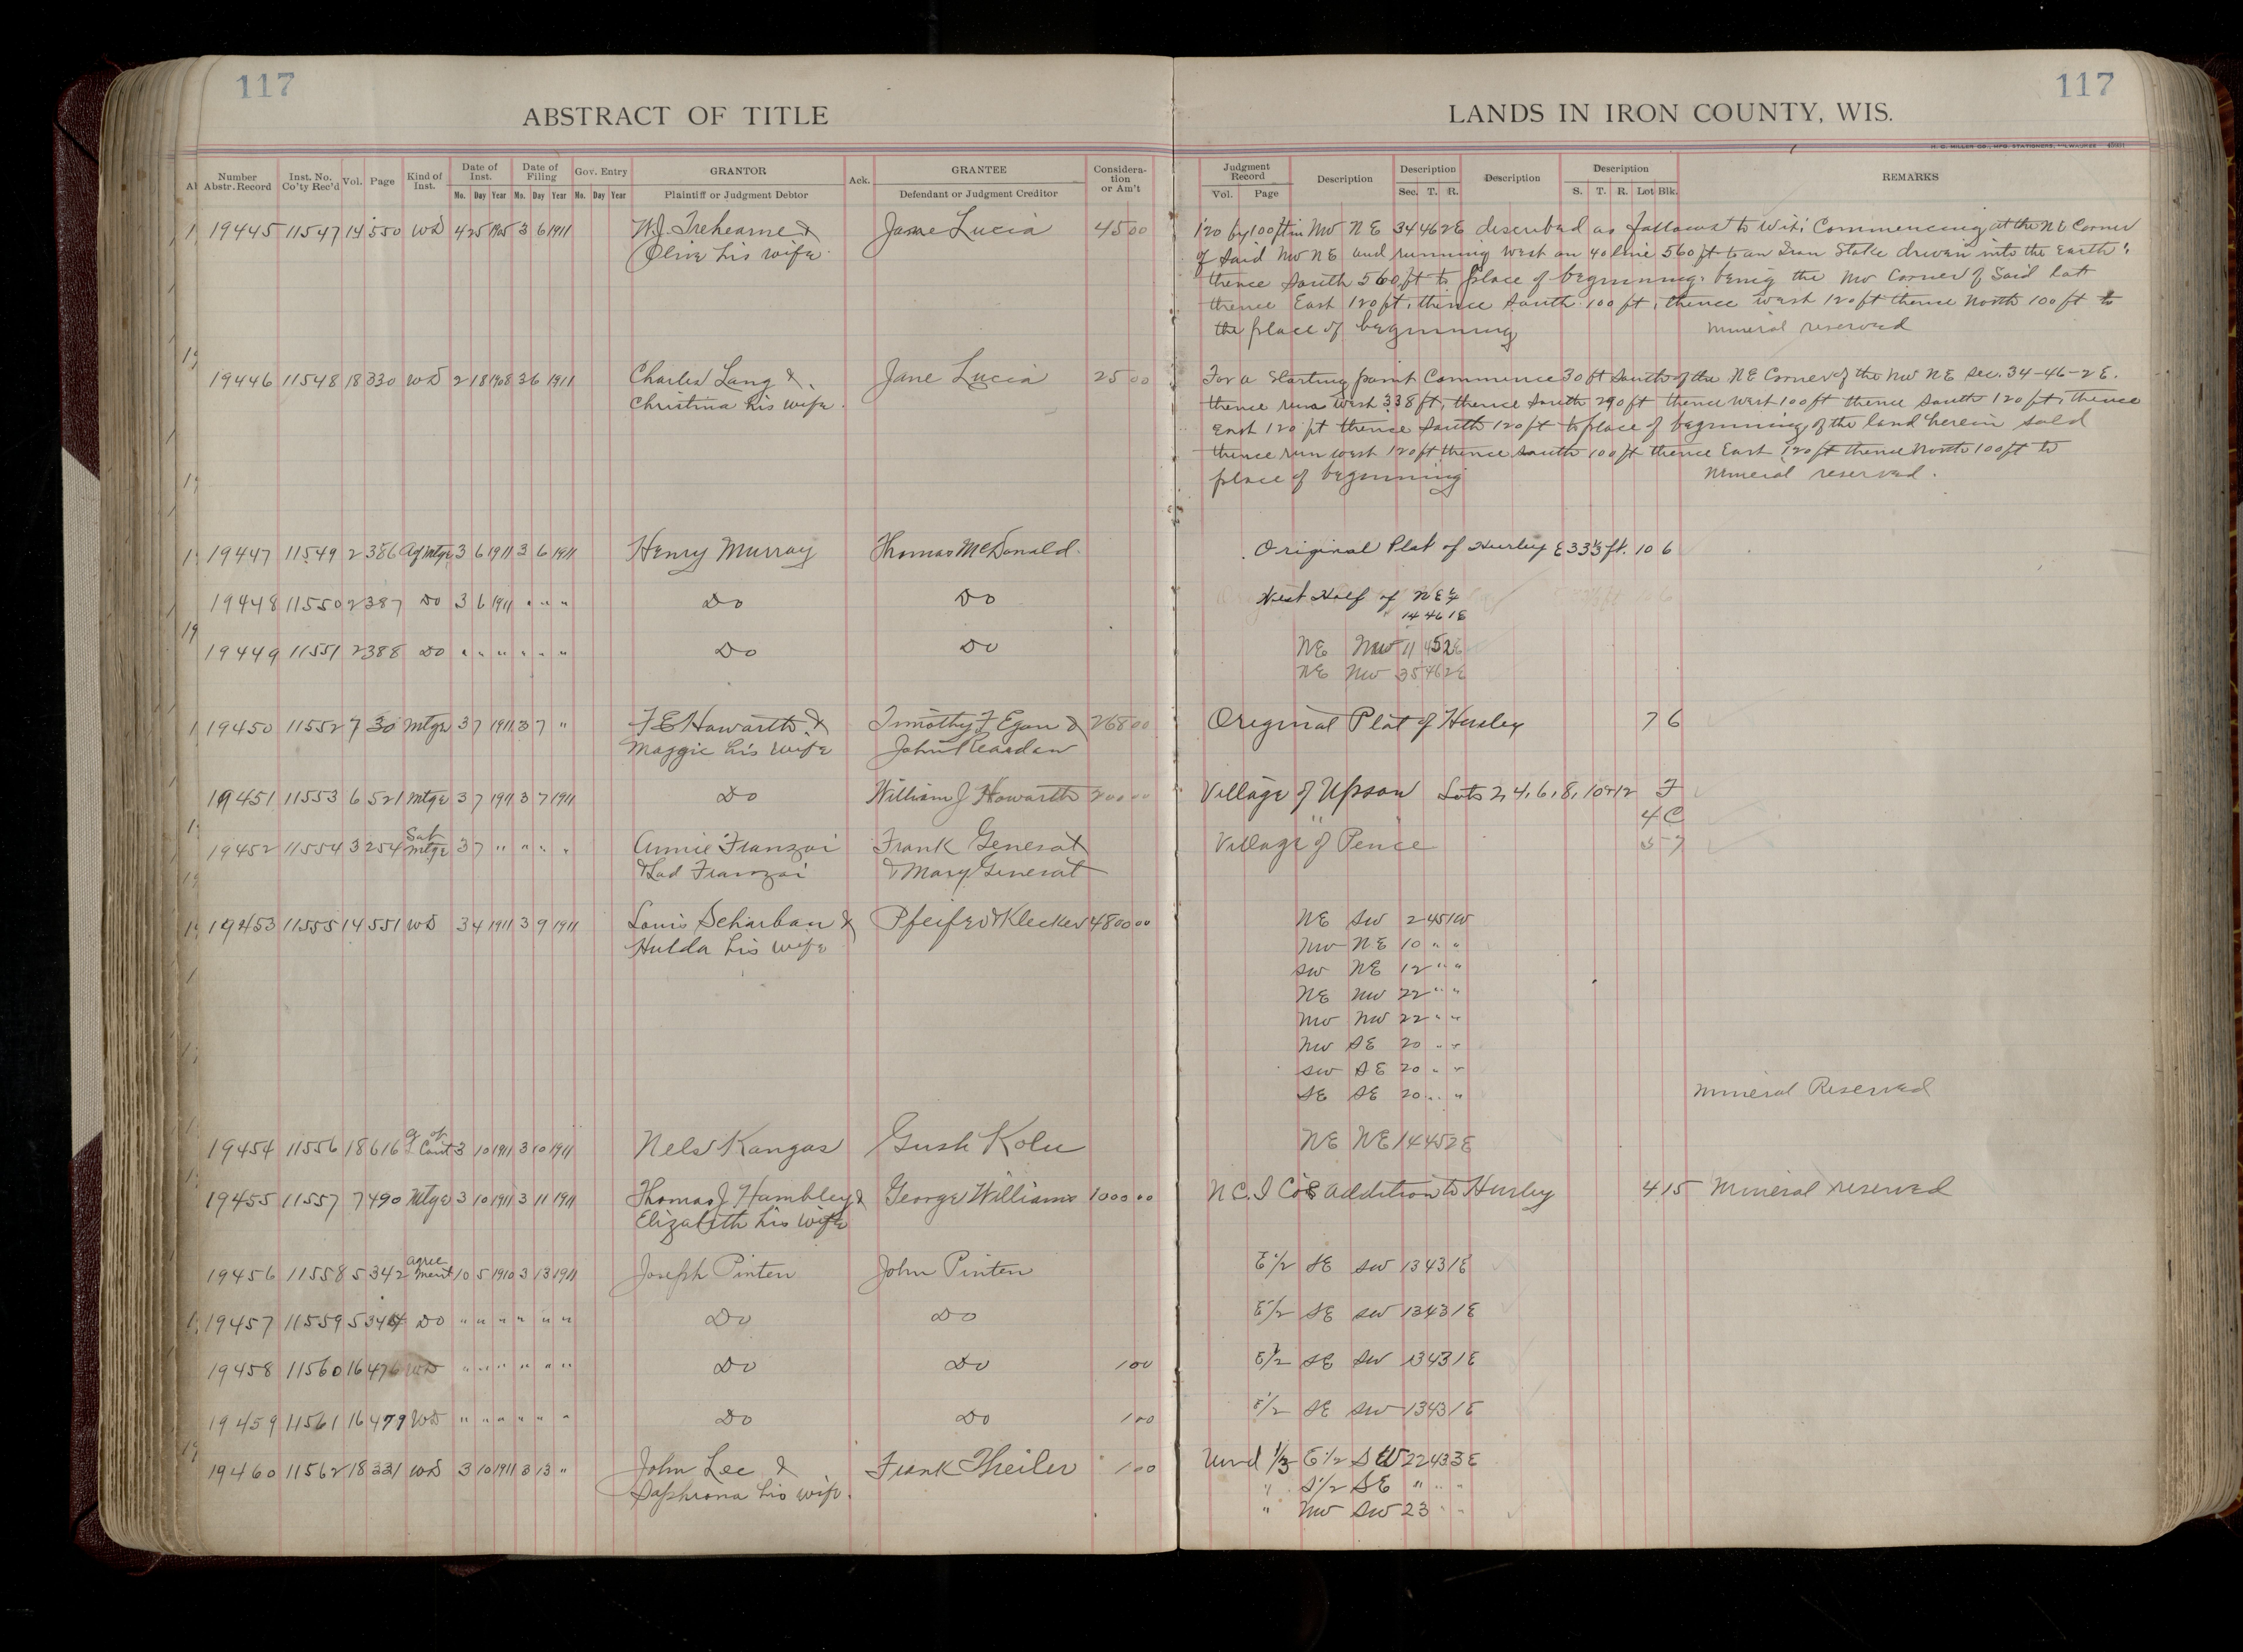 117
117
ABSTRACT OF TITLE
LANDS IN IRON COUNTY, WIS.
H. C. MILLER CO., MFG. STATIONERS, MILWAUKEE
Number Abstr. Record Inst. No. Co'ty Rec'd Vol. Page Kind of Inst. Date of Inst. Mo. Day Year Date of Filing Mo. Day Year Gov. Entry Mo. Day Year GRANTOR Plaintiff or Judgment Debtor Ack. GRANTEE Defendant or Judgment Creditor Consideration or Am't
Judgment Record Vol. Page Description Description Sec. T. R. Description Description S. T. R. Lot Blk. REMARKS
19445 11547 14 550 WD 4 25 1905 3 6 1911 W.J. Trehearne & Jane Lucia 45 00 120 by 100 ft in NW NE 34 46 2E described as follows to wit: Commencing at the NE Corner
Olive his wife of said NW NE and running West on 40 line 560 ft to an Iron Stake driven into the Earth;
thence South 560 ft to place of beginning, being the NW Corner of Said Lot
thence East 120 ft, thence South 100 ft, thence west 120 ft thence North 100 ft to
the place of beginning Mineral reserved
19446 11548 18 330 WD 2 18 1908 3 6 1911 Charles Lang & Jane Lucia 25 00 For a Starting point Commence 30 ft South of the NE Corner of the NW NE Sec. 34-46-2E.
Christina his wife. thence runs West 338 ft, thence South 290 ft thence West 100 ft thence South 120 ft, thence
East 120 ft thence South 120 ft to place of beginning of the land herein sold
thence run west 120 ft thence south 100 ft thence East 120 ft thence North 100 ft to
place of beginning Mineral reserved.
19447 11549 2 386 Mtge 3 6 1911 3 6 1911 Henry Murray Thomas McDonald Original Plat of Hurley E 33⅓ ft. 10 6
19448 11550 2 387 Do 3 6 1911 " " " Do Do West Half of NE¼
14 46 1E
19449 11551 2 388 Do " " " " " " Do Do NE NW 11 45 2E
NE NW 35 46 2E
19450 11552 7 30 Mtge 3 7 1911 3 7 " F E Howarth & Timothy F Egan & 268 00 Original Plat of Hurley 7 6
Maggie his wife John Reardan
19451 11553 6 521 Mtge 3 7 1911 3 7 1911 Do William J Howarth 200 00 Village of Upson Lots 2, 4, 6, 8, 10 & 12 F
" 4 C
19452 11554 3 254 Sat Mtge 3 7 " " " " Annie Franzoi Frank Generat Village of Pence 5 7
& Lad Franzoi & Mary Generat
19453 11555 14 551 WD 3 4 1911 3 9 1911 Louis Scharban & Pfeifer & Klecker 4800 00 NE SW 2 45 1W
Hulda his wife NW NE 10 " "
SW NE 12 " "
NE NW 22 " "
NW NW 22 " "
NW SE 20 " "
SW SE 20 " "
SE SE 20 " " Mineral Reserved
19454 11556 18 616 of Cont 3 10 1911 3 10 1911 Nels Kangas Gush Kolu NE NE 14 45 2E
19455 11557 7 490 Mtge 3 10 1911 3 11 1911 Thomas J Hambley & George Williams 1000 00 N C. I Co's Addition to Hurley 4 15 Mineral reserved
Elizabeth his wife
19456 11558 5 342 agreement 10 5 1910 3 13 1911 Joseph Pinten John Pinten E ½ SE SW 13 43 1E
19457 11559 5 344 Do " " " " " " Do Do E ½ SE SW 13 43 1E
19458 11560 16 476 WD " " " " " " Do Do 1 00 E ½ SE SW 13 43 1E
19459 11561 16 479 WD " " " " " " Do Do 1 00 E ½ SE SW 13 43 1E
19460 11562 18 331 WD 3 10 1911 3 13 " John Lee & Frank Theiler 1 00 Und ⅓ E ½ SW 22 43 3E
Saphrona his wife. " S ½ SE " " "
" NW SW 23 " "